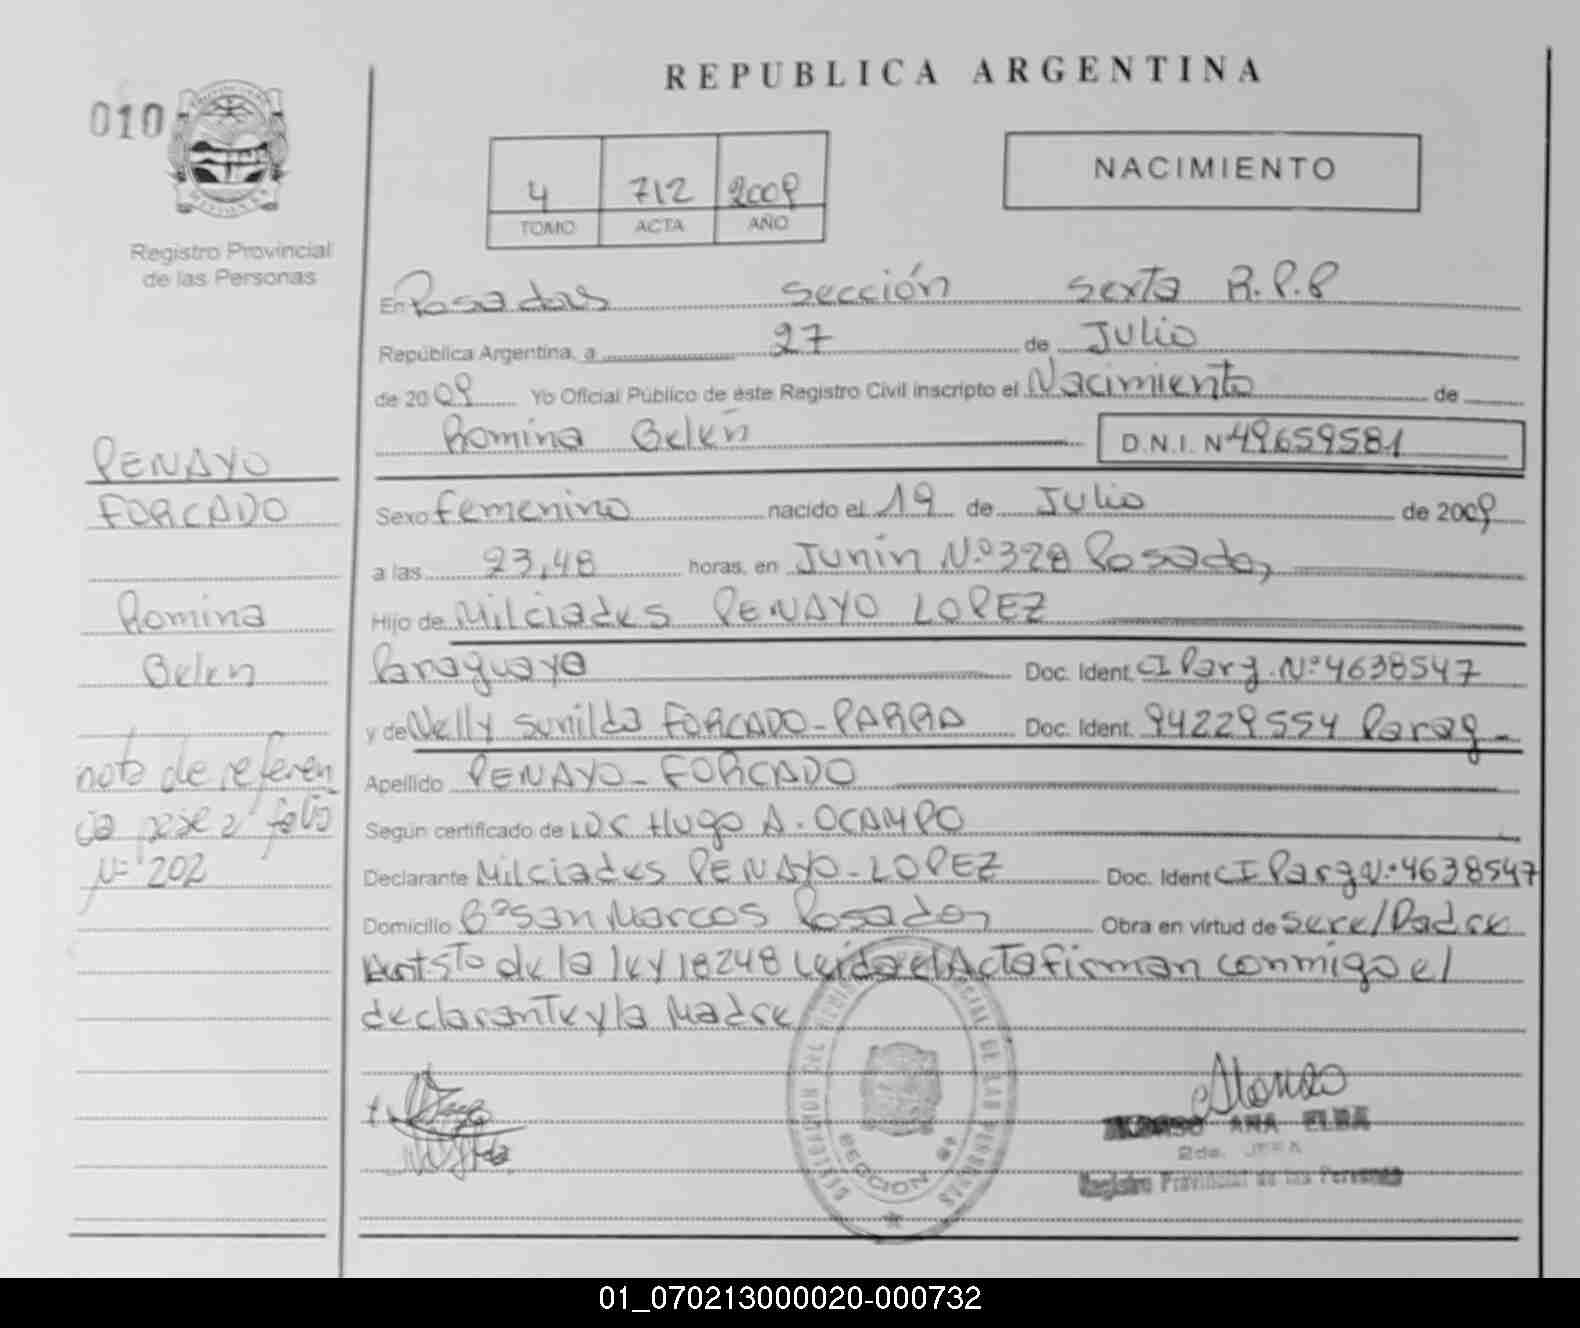 REPUBLICA ARGENTINA
010
NACIMIENTO
4 712 2009
TOMO ACTA AÑO
Registro Provincial
de las Personas
En Posadas Sección Sexta R.P.P
República Argentina, a 27 de Julio
de 2009 Yo Oficial Público de éste Registro Civil inscripto el Nacimiento de
Romina Belén D.N.I. Nº 49659581
PENAYO
FORCADO
Romina
Belen
nota de referen
cia pase a folio
Nº 202
Sexo Femenino nacido el 19 de Julio de 2009
a las 23,48 horas, en Junin Nº 328 Posadas
Hijo de Milciades PENAYO LOPEZ
Paraguaya Doc. Ident. CI Parg. Nº 4638547
y de Nelly Sunilda FORCADO-PARRA Doc. Ident. 94229554 Parag-
Apellido PENAYO-FORCADO
Según certificado de Hugo A. OCAMPO
Declarante Milciades PENAYO-LOPEZ Doc. Ident CI Parg Nº 4638547
Domicilio Bº San Marcos Posadas Obra en virtud de Sere/Padre
Art 5to de la ley 18248 Leida el Acta firman conmigo el
declarante y la Madre
ALONSO ANA ELBA
2da. JEFA
Registro Provincial de las Personas
SECCION 6ª
01_070213000020-000732